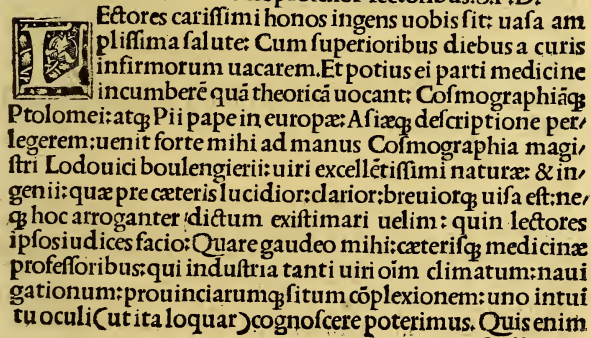 LEctores cariſſimi honos ingens uobis ſit: uaſa am
pliſſima ſalute: Cum ſuperioribus diebus a curis
infirmorum uacarem.Et potius ei parti medicine
incumberē quā theoricā uocant: Coſmographiāqꝫ
Ptolomei:atqꝫ Pii pape in europæ: Aſiæqꝫ deſcriptione per/
legerem:uenit forte mihi ad manus Coſmographia magi/
ſtri Lodouici boulengierii: uiri excellētiſſimi naturæ: & in/
genii: quæ pre cæteris lucidior: clarior: breuiorqꝫ uiſa eſt:ne/
qꝫ hoc arroganter dictum exiſtimari uelim : quin lectores
ipſos iudices facio: Quare gaudeo mihi:cæteriſqꝫ medicinæ
profeſſoribus: qui induſtria tanti uiri oīm climatum:naui
gationum: prouinciarumqꝫ ſitum cōplexionem: uno intui
tu oculi(ut ita loquar)cognoſcere poterimus. Quis enim